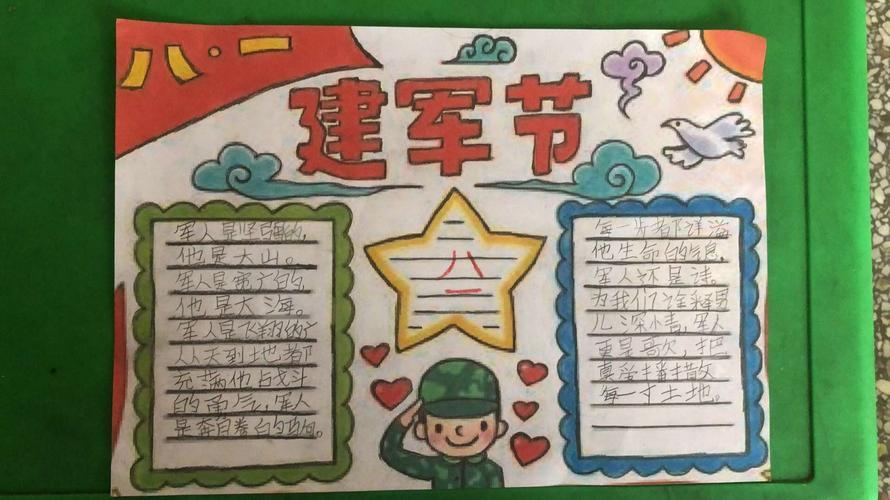 八·一
建军节
军人是坚强的,
他是大山。
军人是宽广的,
他是大海。
军人是飞翔的
从天到地都
充满他战斗
的勇气,军人
是奔
八
一
每一步都洋溢
他生命的气息,
军人还是诗。
为我们诠释男
儿深情,军人
更是歌,把
真爱播撒
每一寸土地。